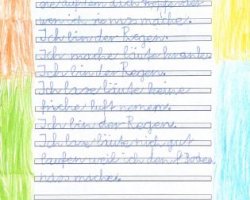 wen ich nas mache.
Ich bin der Regen.
Ich mache läute krank.
Ich bin der Regen.
Ich lase läute keine
frische luft nemen.
Ich bin der Regen.
Ich lase läute nich gut
laufen weil ich den Boden
nas mache.